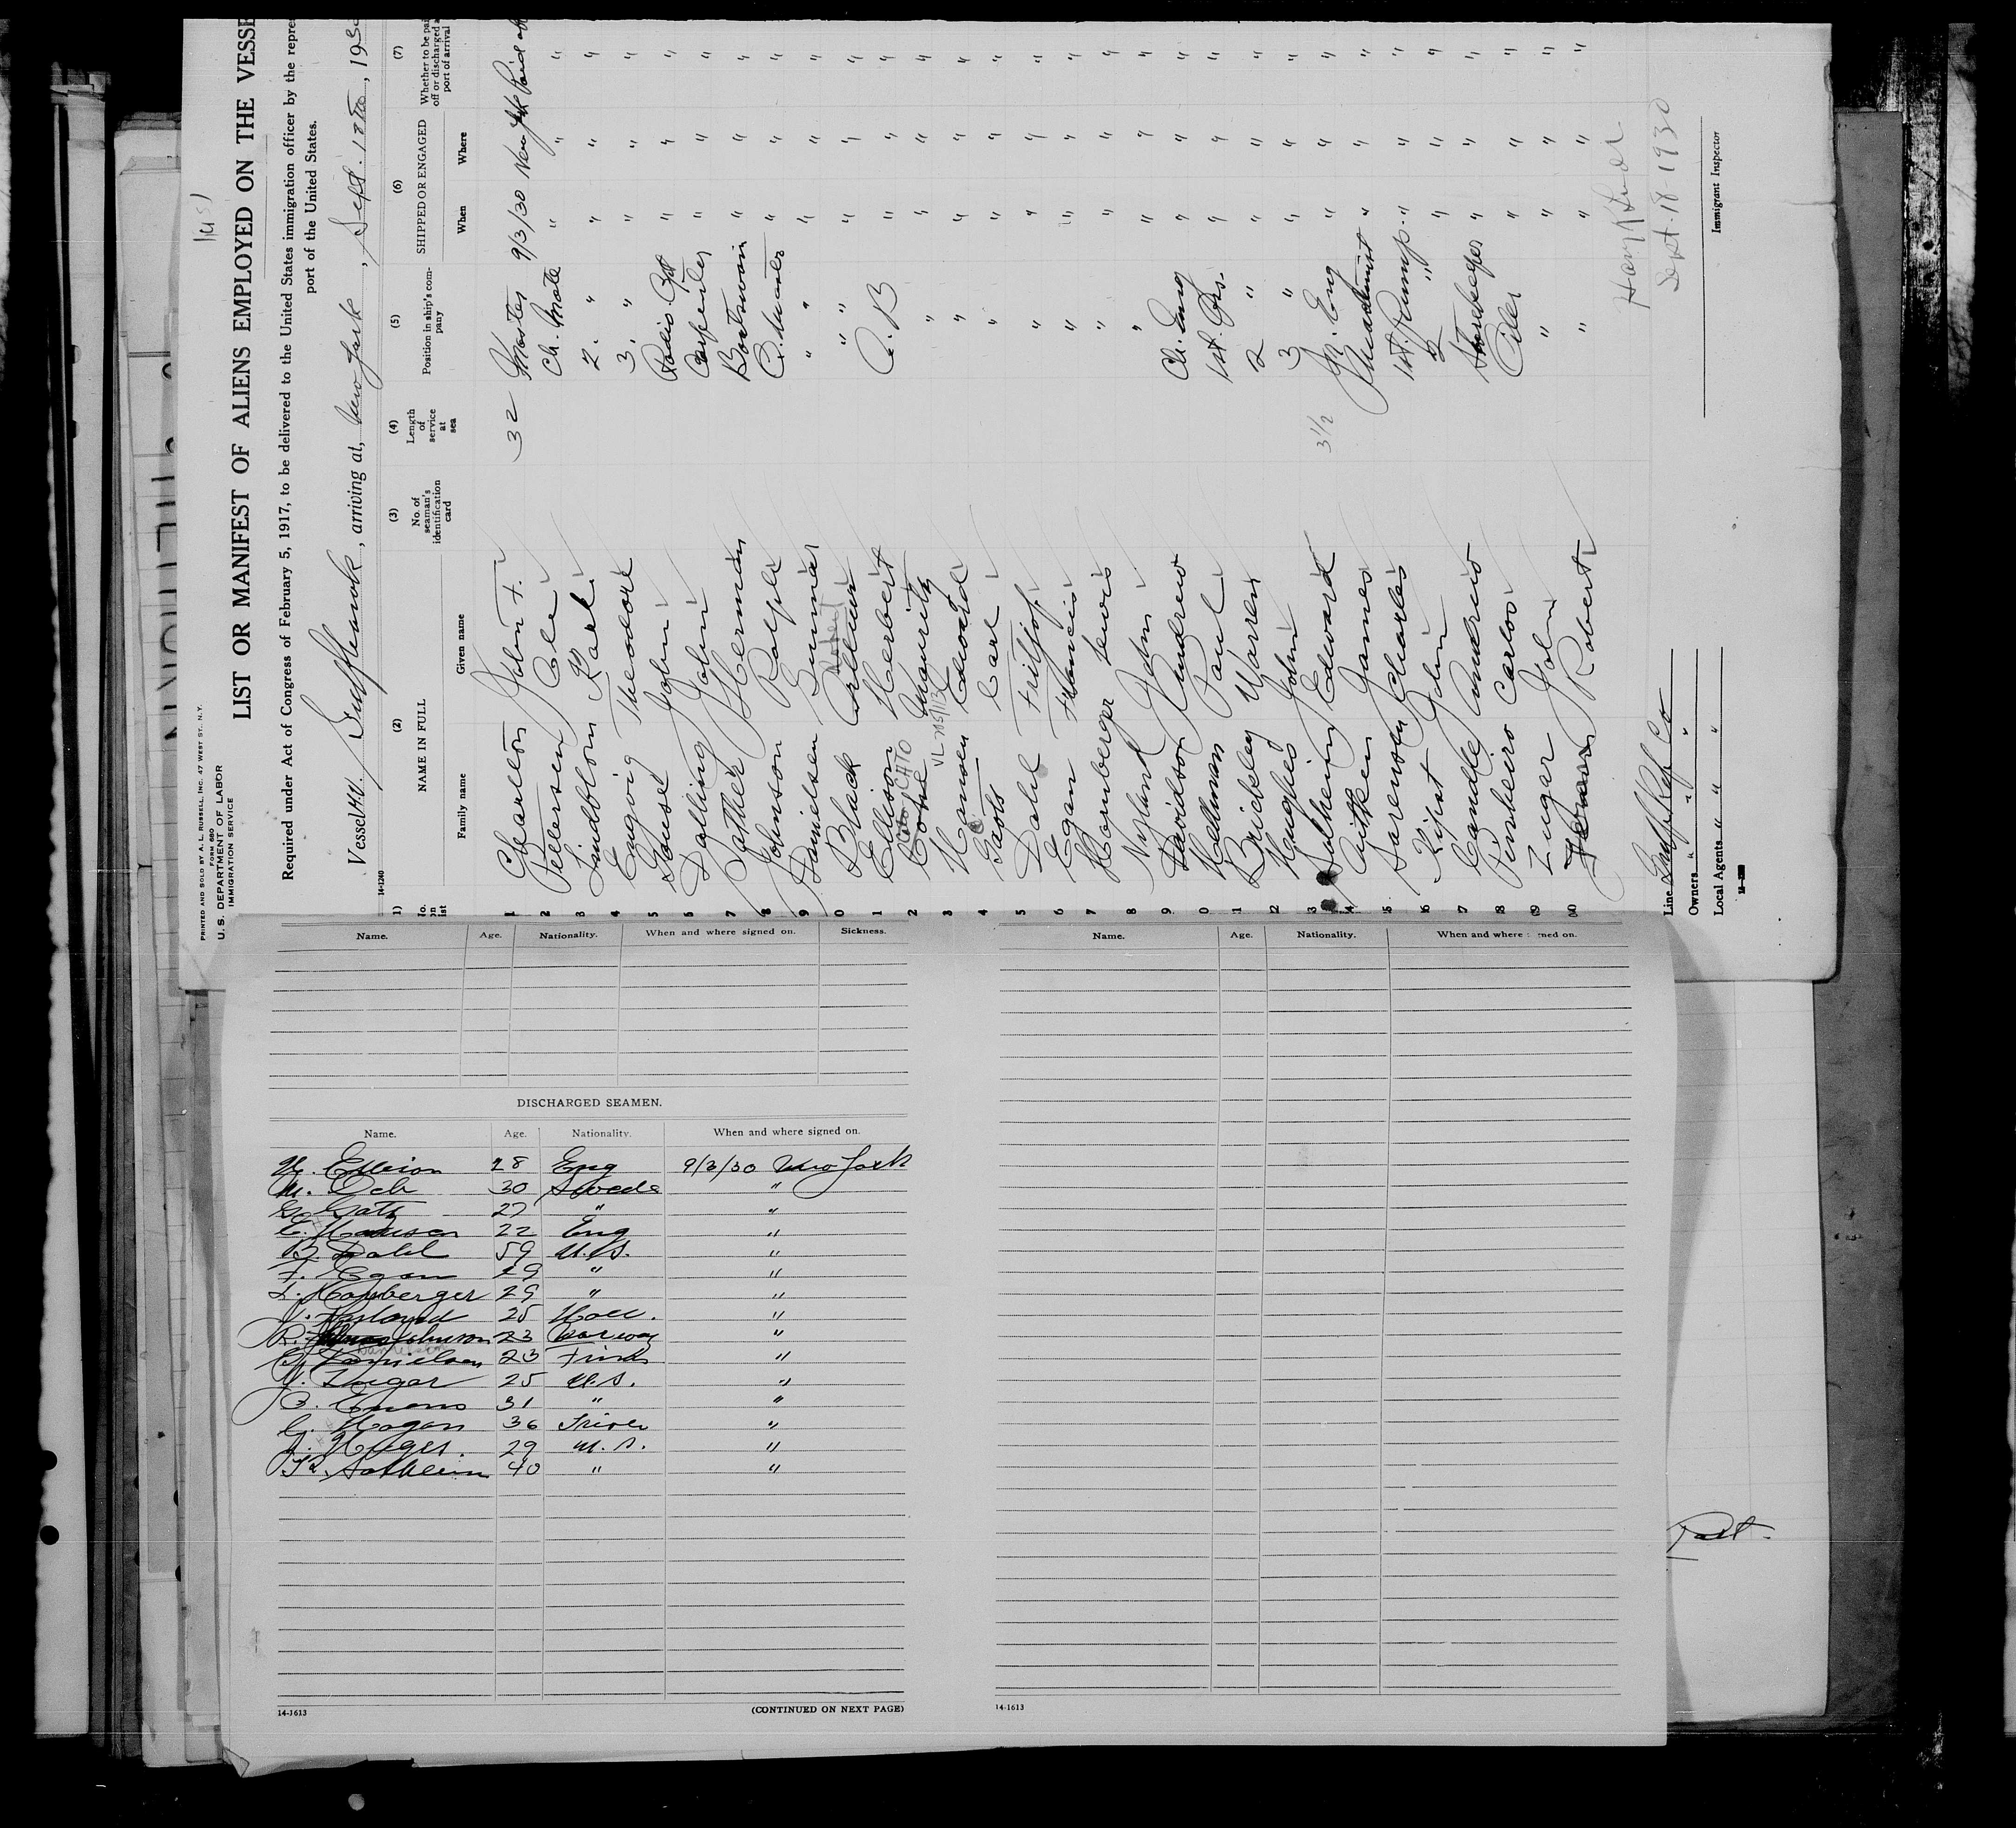 PRINTED AND SOLD BY A. L. RUSSELL, INC. 47 WEST ST. N.Y.
U. S. DEPARTMENT OF LABOR
FORM 680
IMMIGRATION SERVICE
LIST OR MANIFEST OF ALIENS EMPLOYED ON THE VESSE
Required under Act of Congress of February 5, 1917, to be delivered to the United States immigration officer by the repre
port of the United States.
Vessel M.V. Gulfhawk, arriving at, New York, Sept. 18th, 193
14-1240
(2) (3) (4) (5) (6) (7)
NAME IN FULL
Family name Given name
No. of seaman's identification card
Length of service at sea
Position in ship's company
SHIPPED OR ENGAGED
When Where
Whether to be paid off or discharged at port of arrival
1 Charlton John F. 32 Master 9/3/30 New York Paid off
2 Pettersen Ole Ch. Mate " " "
3 Lindblom Karl 2. " " " "
4 Engvig Theodore 3. " " " "
5 John Radio Opt " " "
6 Dalling John Carpenter " " "
7 Herman Boatswain " " "
8 Johnson Ralph Q. Master " " "
9 Danielsen Gunnar " " " "
0 Black " " " "
1 Ellison Herbert A. B " " "
2 CATO Mauritz " " " "
3 Hansen Edward " " " "
4 Gats Carl " " " "
5 Dahl Fritjof " " " "
6 Egan Francis " " " "
7 Hornberger Lewis " " " "
8 Nyland John " " " "
9 Davidson Andrew Ch. Eng " " "
0 Paul 1st. Ass. " " "
1 Brickley Warren 2 " " " "
2 Hughes John 3 " " " "
3 Edward 3½ Jr. Eng " " "
4 Aitken James Machinist " " "
5 Sorenson Charles 1st. Pump. " " "
6 Kipst John 2 " " " "
7 Candle Andrew Storekeeper " " "
8 Pinheiro Carlos Oiler " " "
9 Zugar John " " " "
Robert " " " "
Line Gulf Refg Co
Owners " " "
Local Agents " " "
Sept. 18 1930
Immigrant Inspector
Name. Age. Nationality. When and where signed on. Sickness.
DISCHARGED SEAMEN.
Name. Age. Nationality. When and where signed on.
H. Ellison 28 Eng 9/3/30 New York
M. 30 Swede "
G. Gats 27 " "
E. Hansen 22 Eng "
Dahl 59 U.S. "
F. Egan 29 " "
L. Hornberger 29 " "
J. Nyland 25 Holl. "
R. Johnson 23 Norway "
G. Danielsen 23 Finn "
J. Zugar 25 U.S. "
31 " "
Hogan 36 "
29 U.S. "
40 " "
14-1613
(CONTINUED ON NEXT PAGE)
Name. Age. Nationality. When and where signed on.
14-1613